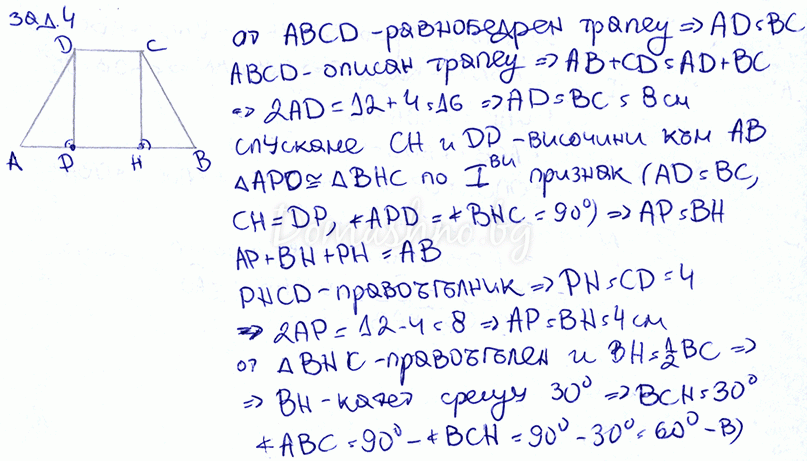 зад.4
D C
A P H B
от ABCD - равнобедрен трапец ⇒ AD = BC
ABCD - описан трапец ⇒ AB + CD = AD + BC
⇒ 2AD = 12 + 4 = 16 ⇒ AD = BC = 8 см
спускаме CH и DP - височини към AB
△APD ≅ △BHC по I ви признак (AD = BC,
CH = DP, ∢APD = ∢BHC = 90°) ⇒ AP = BH
AP + BH + PH = AB
PHCD - правоъгълник ⇒ PH = CD = 4
⇒ 2AP = 12 - 4 = 8 ⇒ AP = BH = 4 см
от △BHC - правоъгълен и BH = ½BC ⇒
⇒ BH - катет срещу 30° ⇒ BCH = 30°
∢ABC = 90° - ∢BCH = 90° - 30° = 60° - В)
Domashno.bg